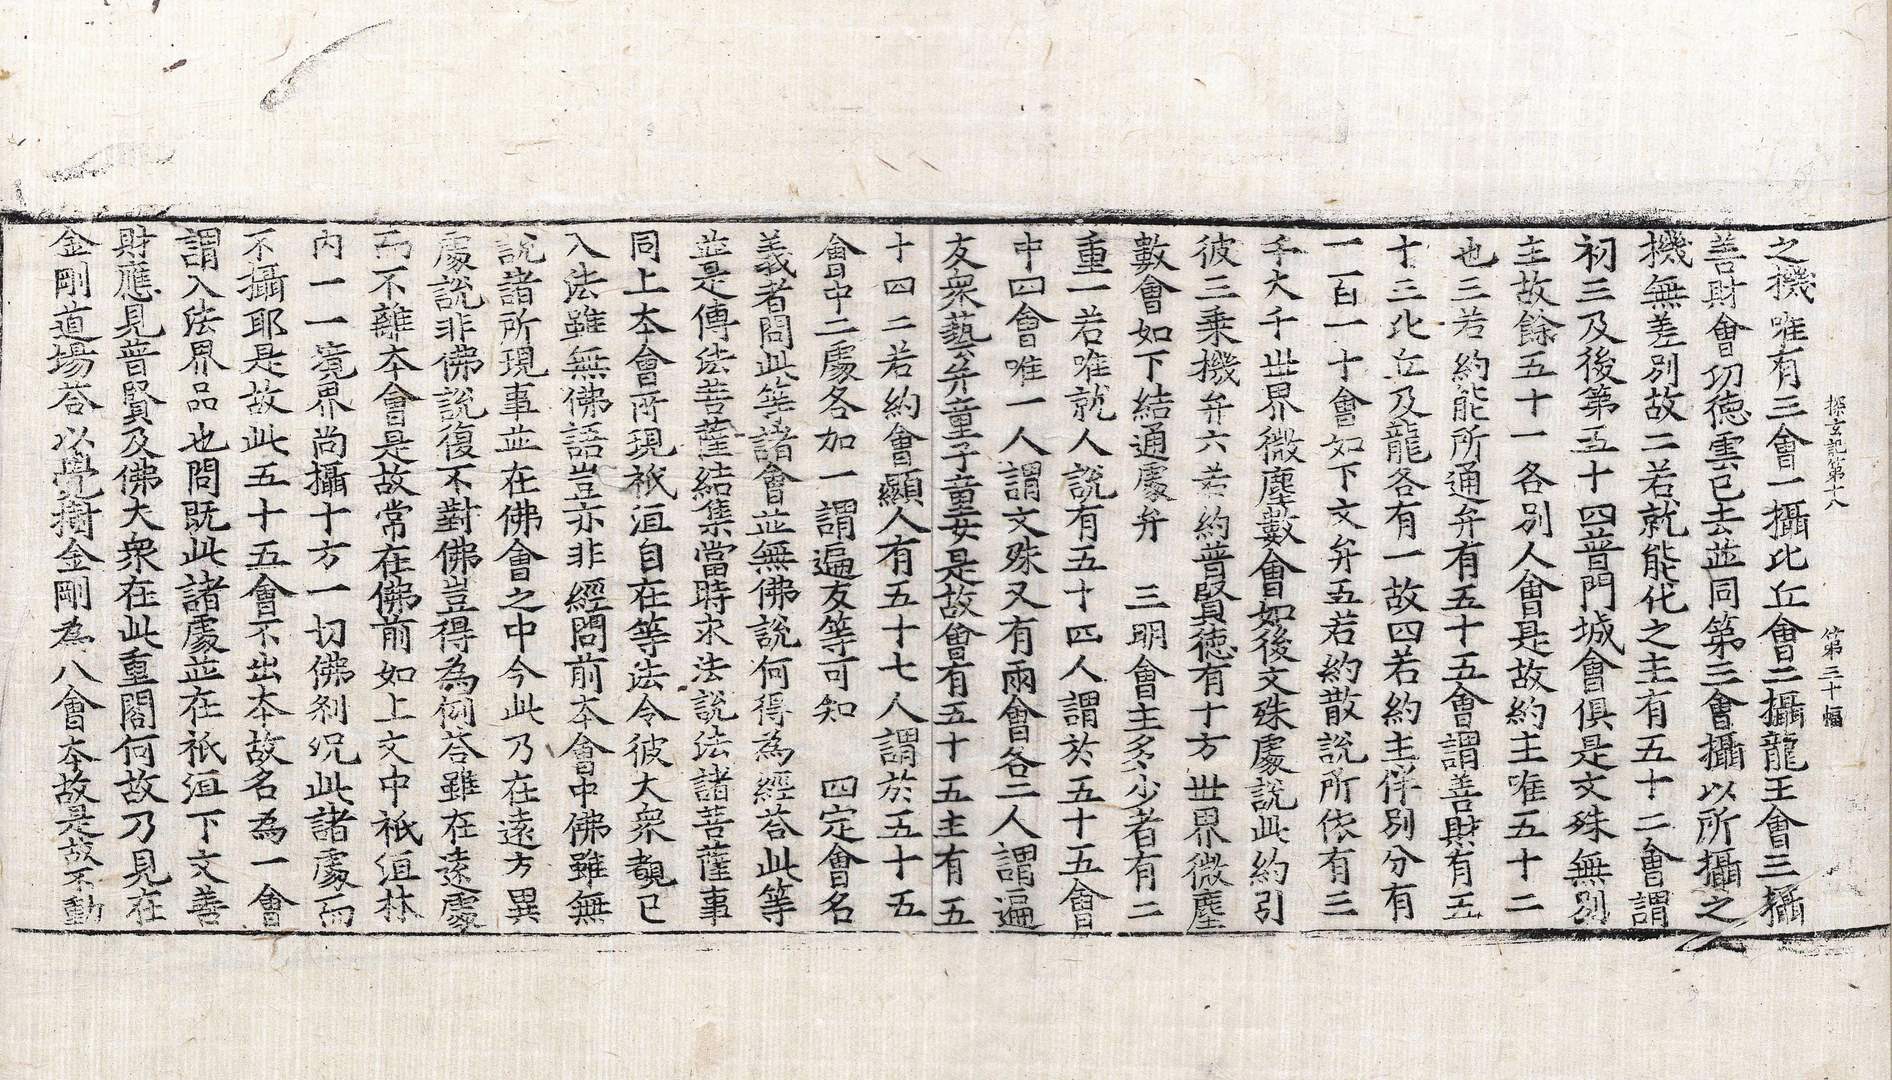 探玄記第十八　第三十幅
之機唯有三會一攝比丘會二攝龍王會三攝
善財會功德雲已去並同第三會攝以所攝之
機無差別故二若就能化之主有五十二會謂
初三及後第五十四普門城會俱是文殊無別
主故餘五十一各別人會是故約主唯五十二
也三若約能所通弁有五十五會謂善財有五
十三比丘及龍各有一故四若約主伴別分有
一百一十會如下文弁五若約散說所依有三
千大千世界微塵數會如後文殊處說此約引
彼三乘機弁六若約普賢德有十方世界微塵
數會如下結通處弁　三明會主多少者有二
重一若唯就人說有五十四人謂於五十五會
中四會唯一人謂文殊又有兩會各二人謂遍
友衆藝弁童子童女是故會有五十五主有五
十四二若約會顯人有五十七人謂於五十五
會中二處各加一謂遍友等可知　四定會名
義者問此等諸會並無佛說何得為經荅此等
並是傳法菩薩結集當時求法說法諸菩薩事
同上本會所現祇洹自在等法令彼大衆覩已
入法雖無佛語豈亦非經問前本會中佛雖無
說諸所現事並在佛會之中今此乃在遠方異
處說非佛說復不對佛豈得為例荅雖在遠處
而不離本會是故常在佛前如上文中祇洹林
內一一境界尚攝十方一切佛剎況此諸處而
不攝耶是故此五十五會不出本故名為一會
謂入法界品也問既此諸處並在祇洹下文善
財應見普賢及佛大衆在此重閣何故乃見在
金剛道場荅以覺樹金剛為八會本故是故不動